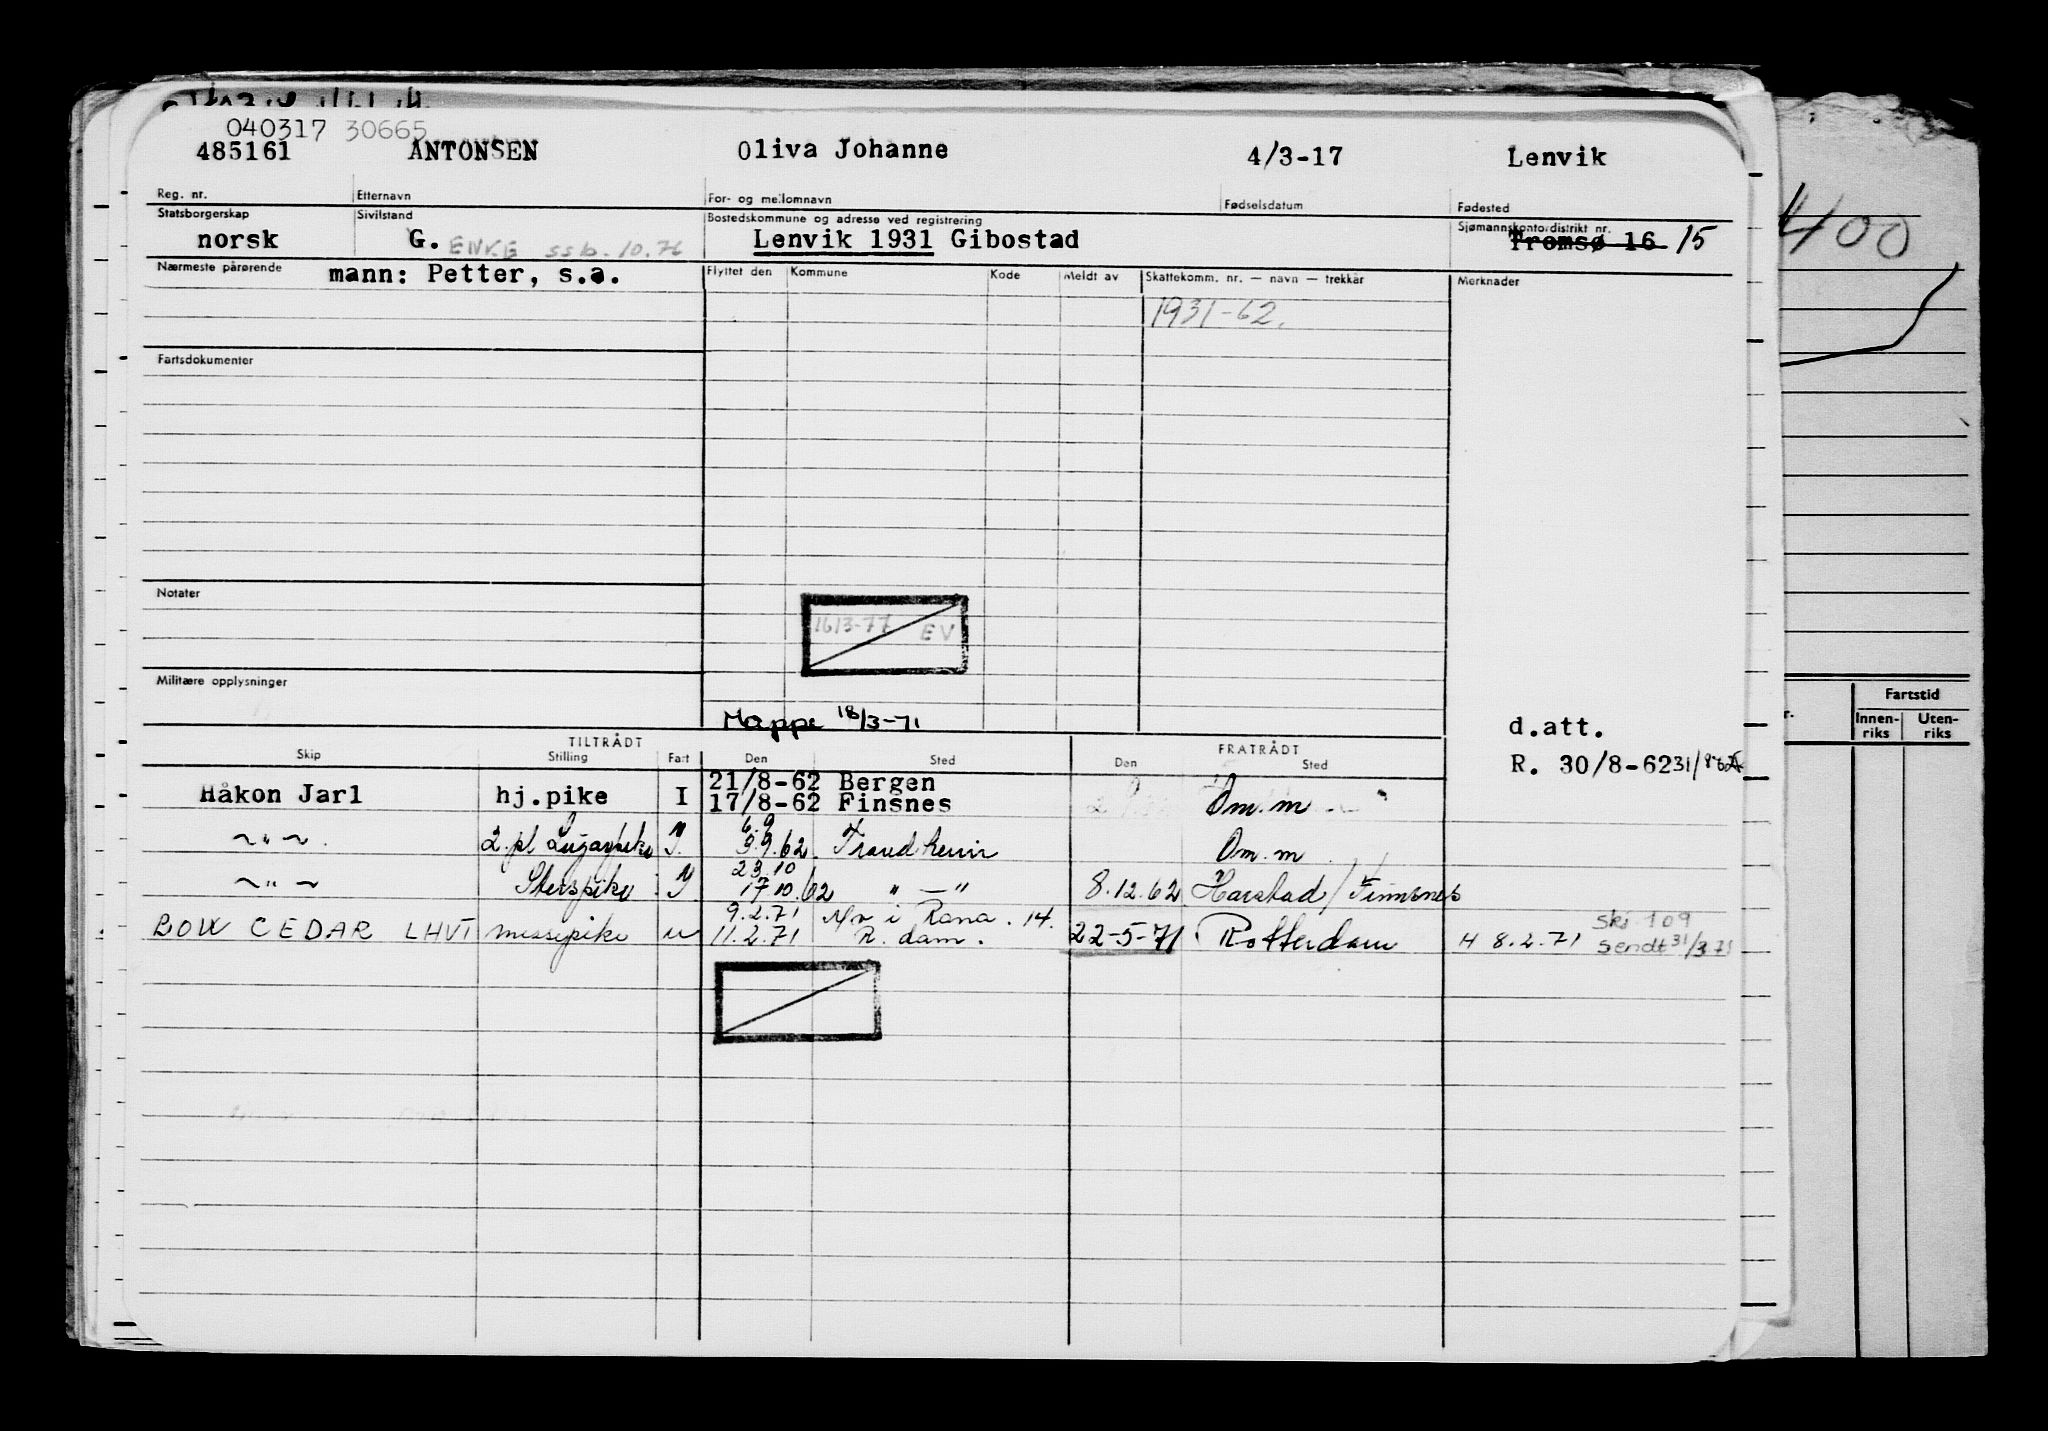 040317 30665
485161 ANTONSEN Oliva Johanne 4/3-17 Lenvik
Reg. nr. Etternavn For- og mellomnavn Fødselsdatum Fødested
Statsborgerskap Sivilstand Bostedskommune og adresse ved registrering Sjømannskontor/distrikt nr.
norsk G. ENKE ssb. 10.76 Lenvik 1931 Gibostad Tromsø 16 15
400
Nærmeste pårørende mann: Petter, s.a. Flyttet den Kommune Kode Meldt av Skattekomm. nr. — navn — trekkår Merknader
1931-62.
Fartsdokumenter
Notater
1613-77 EV
Militære opplysninger
Mappe 18/3-71
d.att.
R. 30/8-62 31/8-62
TILTRÅDT FRATRÅDT
Skip Stilling Fart Den Sted Den Sted
Fartstid
Innen-riks Uten-riks
21/8-62 Bergen
Håkon Jarl hj.pike I 17/8-62 Finsnes Om.m
6.9
~"~ 2.pl Lugarpike 3.9.62 Trondheim Om.m
23.10
~"~ Sterspike 17 10.62 " — " 8.12.62 Harstad / Finnsnes
9.2.71 Mo i Rana. 14.
BOW CEDAR LHVT messepike u 11.2.71 R.dam. 22-5-71 Rotterdam H 8.2.71 skj 109
sendt 31/3 71